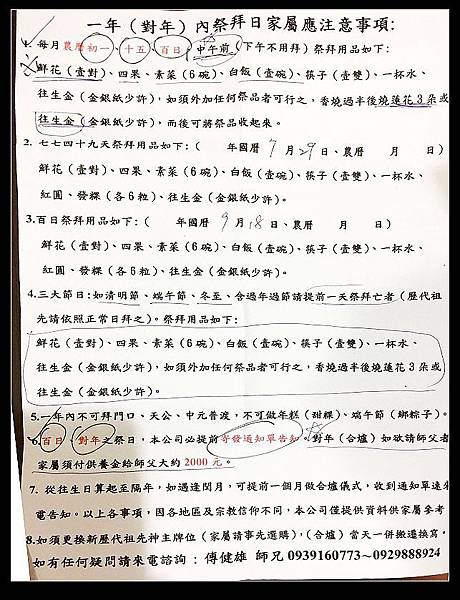 一年(對年)內祭拜日家屬應注意事項:
1. 每月農曆初一、十五、百日，中午前(下午不用拜)祭拜用品如下:
鮮花(壹對)、四果、素菜(6碗)、白飯(壹碗)、筷子(壹雙)、一杯水、
往生金(金銀紙少許)，如須外加任何祭品者可行之，香燒過半後燒蓮花3朵或
往生金(金銀紙少許)，而後可將祭品收起來。
2. 七七四十九天祭拜用品如下:( 年國曆 7月29日、農曆 月 日)
鮮花(壹對)、四果、素菜(6碗)、白飯(壹碗)、筷子(壹雙)、一杯水、
紅圓、發粿(各6粒)、往生金(金銀紙少許)。
3.百日祭拜用品如下:( 年國曆 9月18日、農曆 月 日)
鮮花(壹對)、四果、素菜(6碗)、白飯(壹碗)、筷子(壹雙)、一杯水、
紅圓、發粿(各6粒)、往生金(金銀紙少許)。
4.三大節日:如清明節、端午節、冬至、含過年過節請提前一天祭拜亡者(歷代祖
先請依照正常日拜之)。祭拜用品如下:
鮮花(壹對)、四果、素菜(6碗)、白飯(壹碗)、筷子(壹雙)、一杯水、
往生金(金銀紙少許)，如須外加任何祭品者可行之，香燒過半後燒蓮花3朵或
往生金(金銀紙少許)。
5.一年內不可拜門口、天公、中元普渡，不可做年糕(甜粿)、端午節(綁粽子)。
6.百日、對年之祭日，本公司必提前寄發通知單告知。對年(合爐)如欲請師父者
家屬須付供養金給師父大約2000元。
7. 從往生日算起至隔年，如遇逢閏月，可提前一個月做合爐儀式，收到通知單速來
電告知。以上各事項，因各地區及宗教信仰不同，本公司僅提供資料供家屬參考
8.如須更換新歷代祖先神主牌位(家屬請事先選購)，(合爐)當天一併搬遷換寫，
如有任何疑問請來電諮詢：傅健雄 師兄 0939160773～0929888924